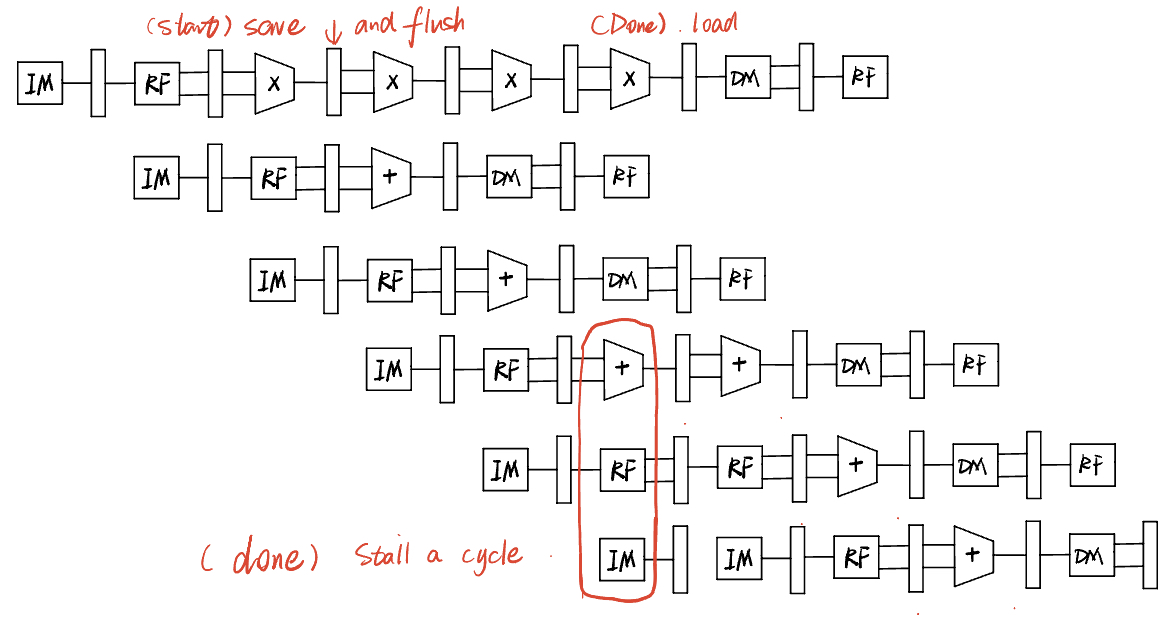 (start) save ↓ and flush (Done). load
IM RF X X X X DM RF
IM RF + DM RF
IM RF + DM RF
IM RF + + DM RF
IM RF RF + DM RF
(done) Stall a cycle IM IM RF + DM